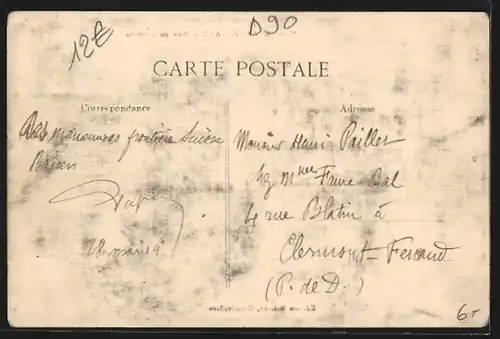 12€
D90
CARTE POSTALE
Correspondance
Adresse
manœuvres frontière Suisse
Baisers
18 mai 14
Monsieur Henri Paillet
chez Mme Faure-Bal
4 rue Blatin à
Clermont-Ferrand
(P. de D.)
6-